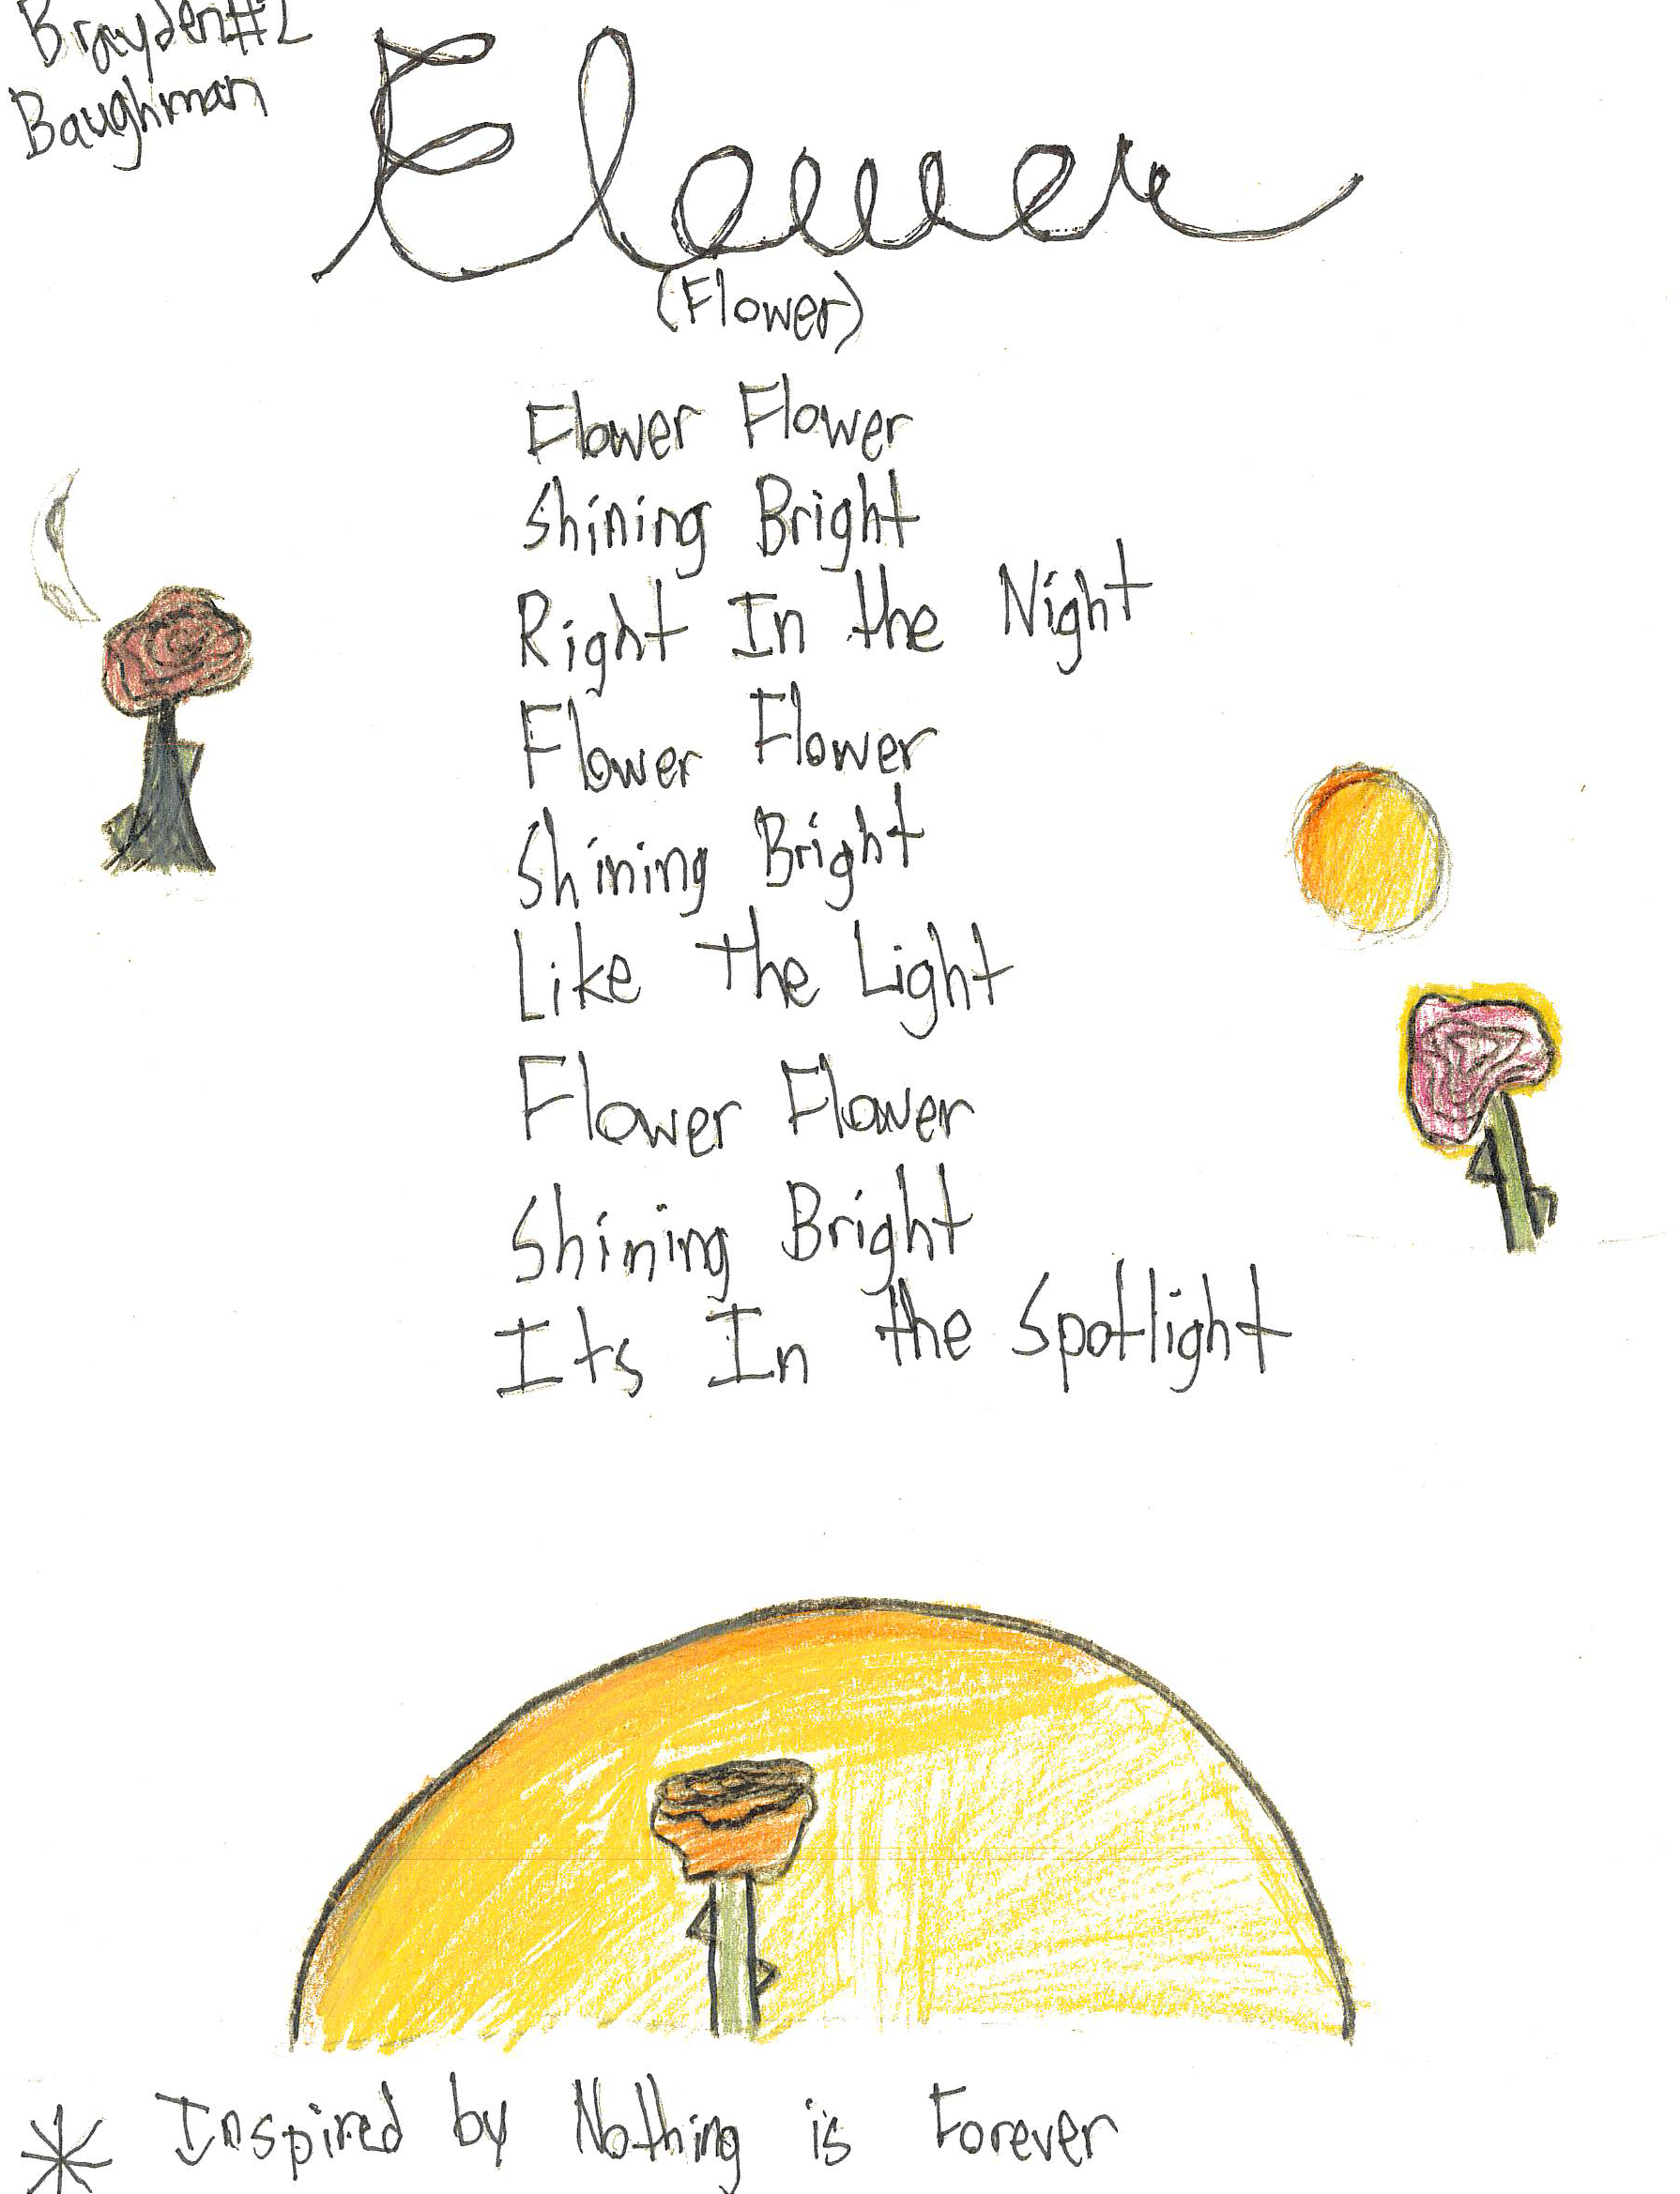 Brayden #2
Baughman
Flower
(Flower)
Flower Flower
Shining Bright
Right In the Night
Flower Flower
Shining Bright
Like the Light
Flower Flower
Shining Bright
Its In the Spotlight
* Inspired by Nothing is Forever